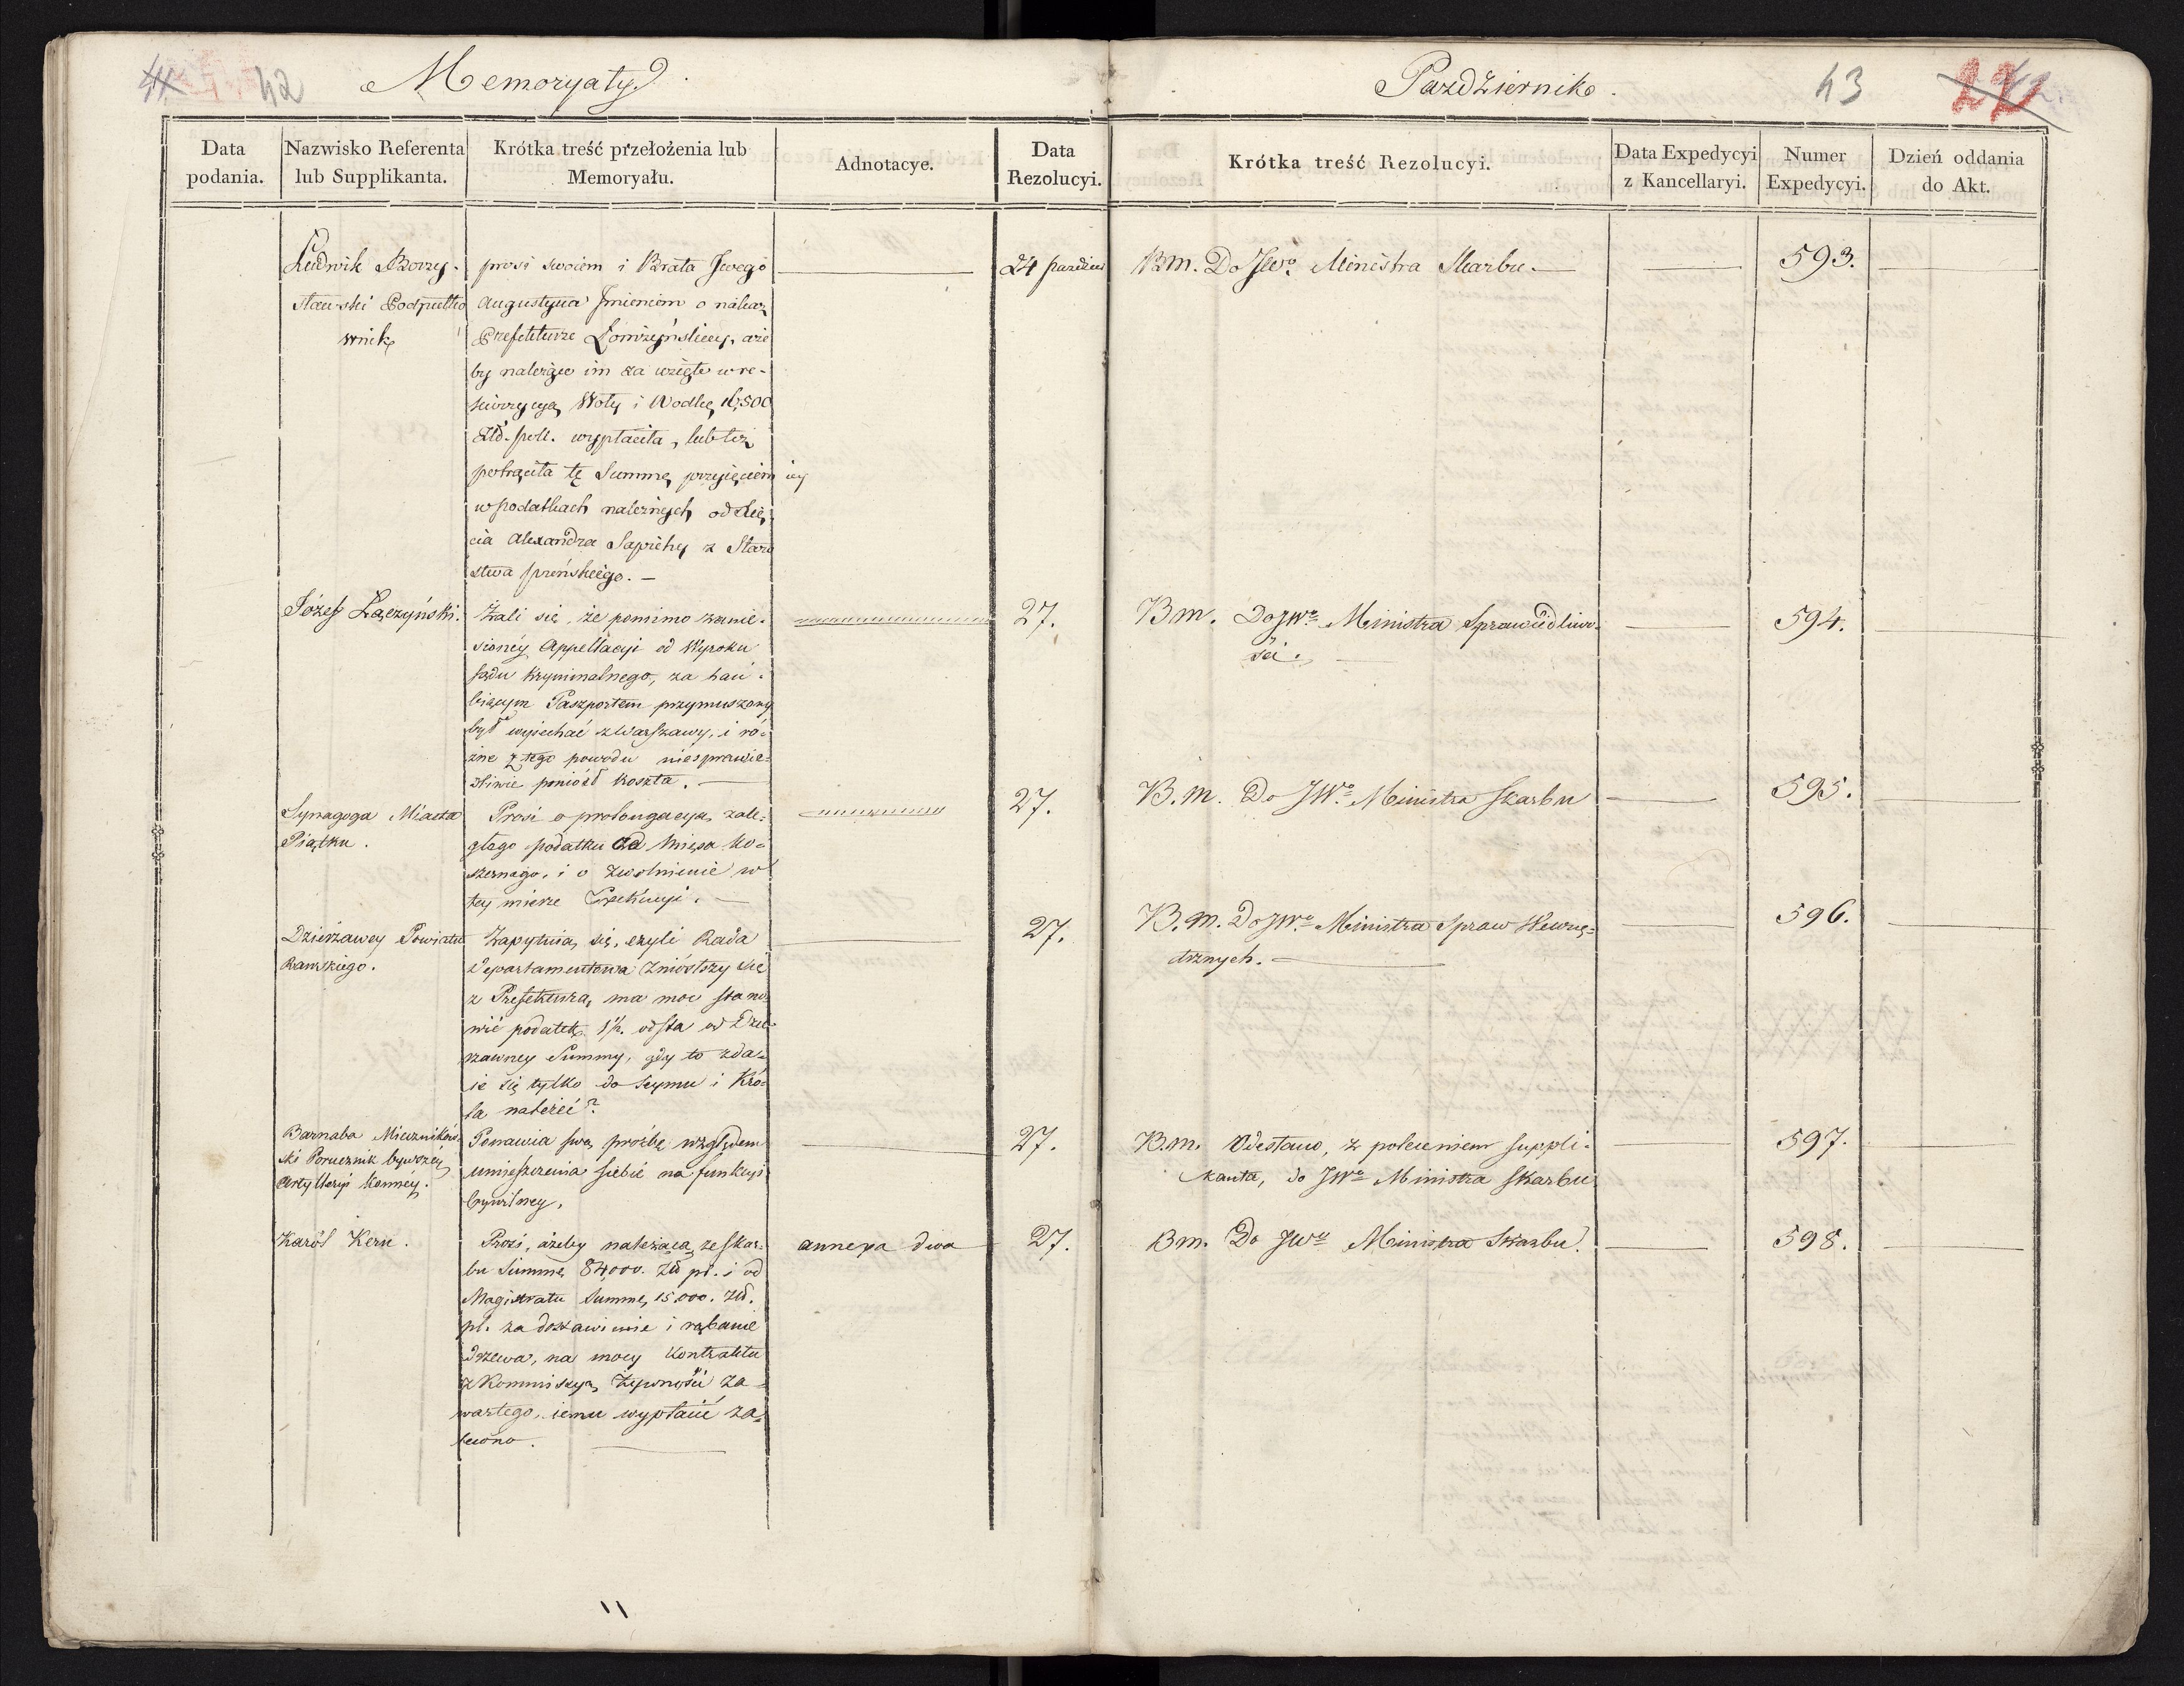 42
Memoryały.
Październik.
43
22
Data podania.
Nazwisko Referenta lub Supplikanta.
Krótka treść przełożenia lub Memoryału.
Adnotacye.
Data Rezolucyi.
Krótka treść Rezolucyi.
Data Expedycyi z Kancellaryi.
Numer Expedycyi.
Dzień oddania do Akt.
Ludwik Borzy-
sławski Podpułko
wnik
prosi swoiem i Brata Swego
Augustyna Jmieniem o nakaz
Prefekturze Łomżyńskiey, aże
by należące im za wzięte w re-
kwizycyą Woły i Wodkę 16,500
Złł. poll. wypłaciła, lub też
potrąciła tę Summę przyięciem iey
w podatkach należnych od Xię
cia Alexandra Sapiehy z Staro
stwa preńskiego. —
24 Paździer
Bm. Do JWo. Ministra Skarbu. —
593.
Józef Łączyński.
Żali się, że pomimo zanie-
sioney Appellacyi od Wyroku
sądu Kryminalnego, za hań-
biącym Paszportem przymuszony
był wyiechać z Warszawy, i ró-
żne z tego powodu niesprawie-
dliwie poniósł koszta. —
27.
Bm. Do JWo. Ministra Sprawiedliwo-
ści. —
594.
Synagoga Miasta
Piątku.
Prosi o prolongacyą zale-
głego podatku od Mięsa ko-
szernego, i o zwolnienie w
tey mierze Exekucyi. —
27.
B.m. Do JWo. Ministra Skarbu
595.
Dzierżawcy Powiatu
Rawskiego.
Zapytuią się, czyli Rada
Departamentowa zniosłszy się
z Prefekturą, ma moc stano-
wić podatek 1½ od sta od Dzie-
rżawney Summy, gdy to zda-
ie się tylko do Seymu i Kró-
la należeć?
27.
B.m. Do JWo. Ministra Spraw Wewnę-
trznych. —
596.
Barnaba Mieczników-
ski Porucznik bywszéy
Artylleryi Konnéy.
Ponawia swą prośbę względem
umieszczenia siebie na funkcyi
Cywilney.
27.
B.m. Odesłano, z poleceniem suppli-
kanta, do JWo Ministra Skarbu
597.
Karól Kern.
Prosi, ażeby należącą ze skar-
bu Summę 84,000. Złł pl. i od
Magistratu Summę 15,000. Złł.
pl. za dostawienie i rąbanie
drzewa, na mocy Kontraktu
z Kommissyą Żywności za-
wartego, iemu wypłacić za-
lecono.
annexa dwa
27.
Bm. Do JWo Ministra Skarbu.
598.